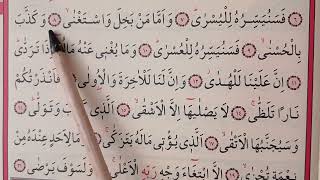 فَسَنُيَسِّرُهُ لِلْيُسْرَىٰ ﴿٧﴾ وَاَمَّا مَنْ بَخِلَ وَاسْتَغْنٰىۙ ﴿٨﴾ وَكَذَّبَ
بِالْحُسْنٰىۙ ﴿٩﴾ فَسَنُيَسِّرُهُ لِلْعُسْرٰىۜ ﴿١٠﴾ وَمَا يُغْن۪ي عَنْهُ مَالُهُٓ اِذَا تَرَدّٰىۜ ﴿١١﴾
اِنَّ عَلَيْنَا لَلْهُدٰىۘ ﴿١٢﴾ وَاِنَّ لَنَا لَلْاٰخِرَةَ وَالْاُو۫لٰى ﴿١٣﴾ فَاَنْذَرْتُكُمْ
نَارًا تَلَظّٰىۚ ﴿١٤﴾ لَا يَصْلٰيهَٓا اِلَّا الْاَشْقٰىۙ ﴿١٥﴾ اَلَّذ۪ي كَذَّبَ وَتَوَلّٰىۜ ﴿١٦﴾
وَسَيُجَنَّبُهَا الْاَتْقٰىۙ ﴿١٧﴾ اَلَّذ۪ي يُؤْت۪ي مَالَهُ يَتَزَكّٰىۚ ﴿١٨﴾ وَمَا لِاَحَدٍ عِنْدَهُ مِنْ
نِعْمَةٍ تُجْزٰىۙ ﴿١٩﴾ اِلَّا ابْتِغَٓاءَ وَجْهِ رَبِّهِ الْاَعْلٰىۚ ﴿٢٠﴾ وَلَسَوْفَ يَرْضٰى ﴿٢١﴾